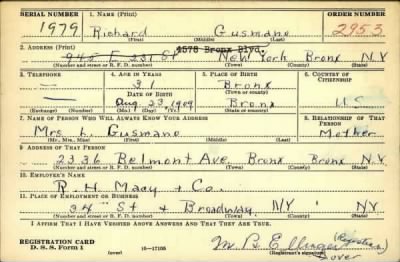 SERIAL NUMBER 1. NAME (Print) ORDER NUMBER
1979 Richard Gusmano 2953
(First) (Middle) (Last)
2. ADDRESS (Print) 4578 Bronx Blvd.
945 E 231 St New York Bronx N.Y
(Number and street or R. F. D. number) (Town) (County) (State)
3. TELEPHONE 4. AGE IN YEARS 5. PLACE OF BIRTH 6. COUNTRY OF CITIZENSHIP
31 Bronx
DATE OF BIRTH
Aug. 23, 1909 Bronx U S
(Exchange) (Number) (Mo.) (Day) (Yr.) (Town or county) (State or country)
7. NAME OF PERSON WHO WILL ALWAYS KNOW YOUR ADDRESS 8. RELATIONSHIP OF THAT PERSON
Mrs. L. Gusmano Mother
(Mr., Mrs., Miss) (First) (Middle) (Last)
9. ADDRESS OF THAT PERSON
2336 Belmont Ave. Bronx Bronx N.Y.
(Number and street or R. F. D. number) (Town) (County) (State)
10. EMPLOYER'S NAME
R. H. Macy + Co.
11. PLACE OF EMPLOYMENT OR BUSINESS
34 St + Broadway, N/Y N.Y
(Number and street or R. F. D. number) (Town) (County) (State)
I AFFIRM THAT I HAVE VERIFIED ABOVE ANSWERS AND THAT THEY ARE TRUE.
REGISTRATION CARD
D. S. S. Form 1 (over) 16—17105 M B Ellinger (Registrar)
(Registrant's signature) over